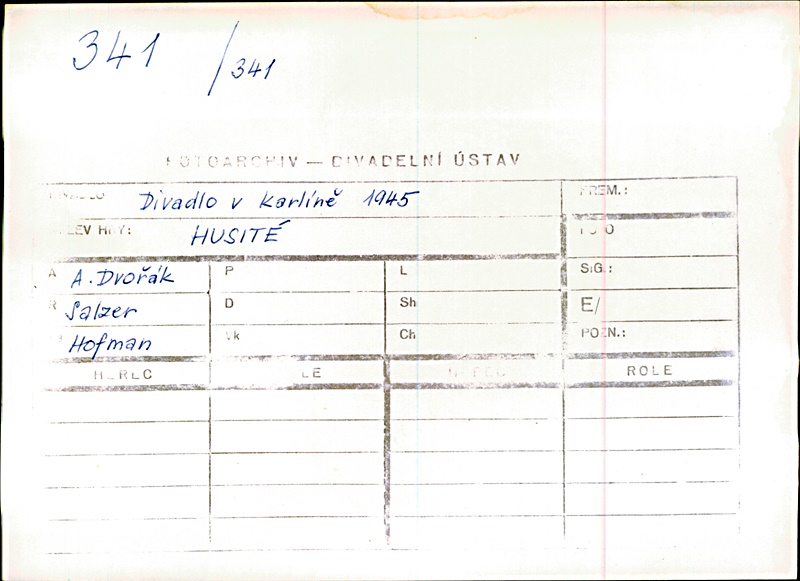 341 /341
FOTOARCHIV — DIVADELNÍ ÚSTAV
Divadlo v Karlíně 1945 PREM.:
HRY: HUSITÉ FOTO
A A. Dvořák P L SIG.:
R Salzer D Sh E/
Hofman Vk Ch POZN.:
HEREC ROLE